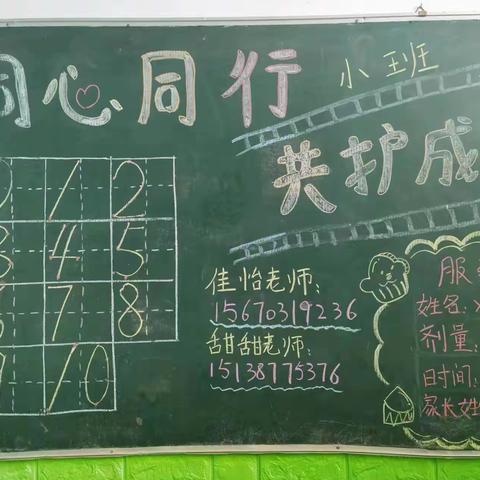 同心同行 小班
共护成
0 1 2
3 4 5
6 7 8
9 10
佳怡老师:
15670319236
甜甜老师:
15138775376
服
姓名:
剂量:
日时间:
家长姓